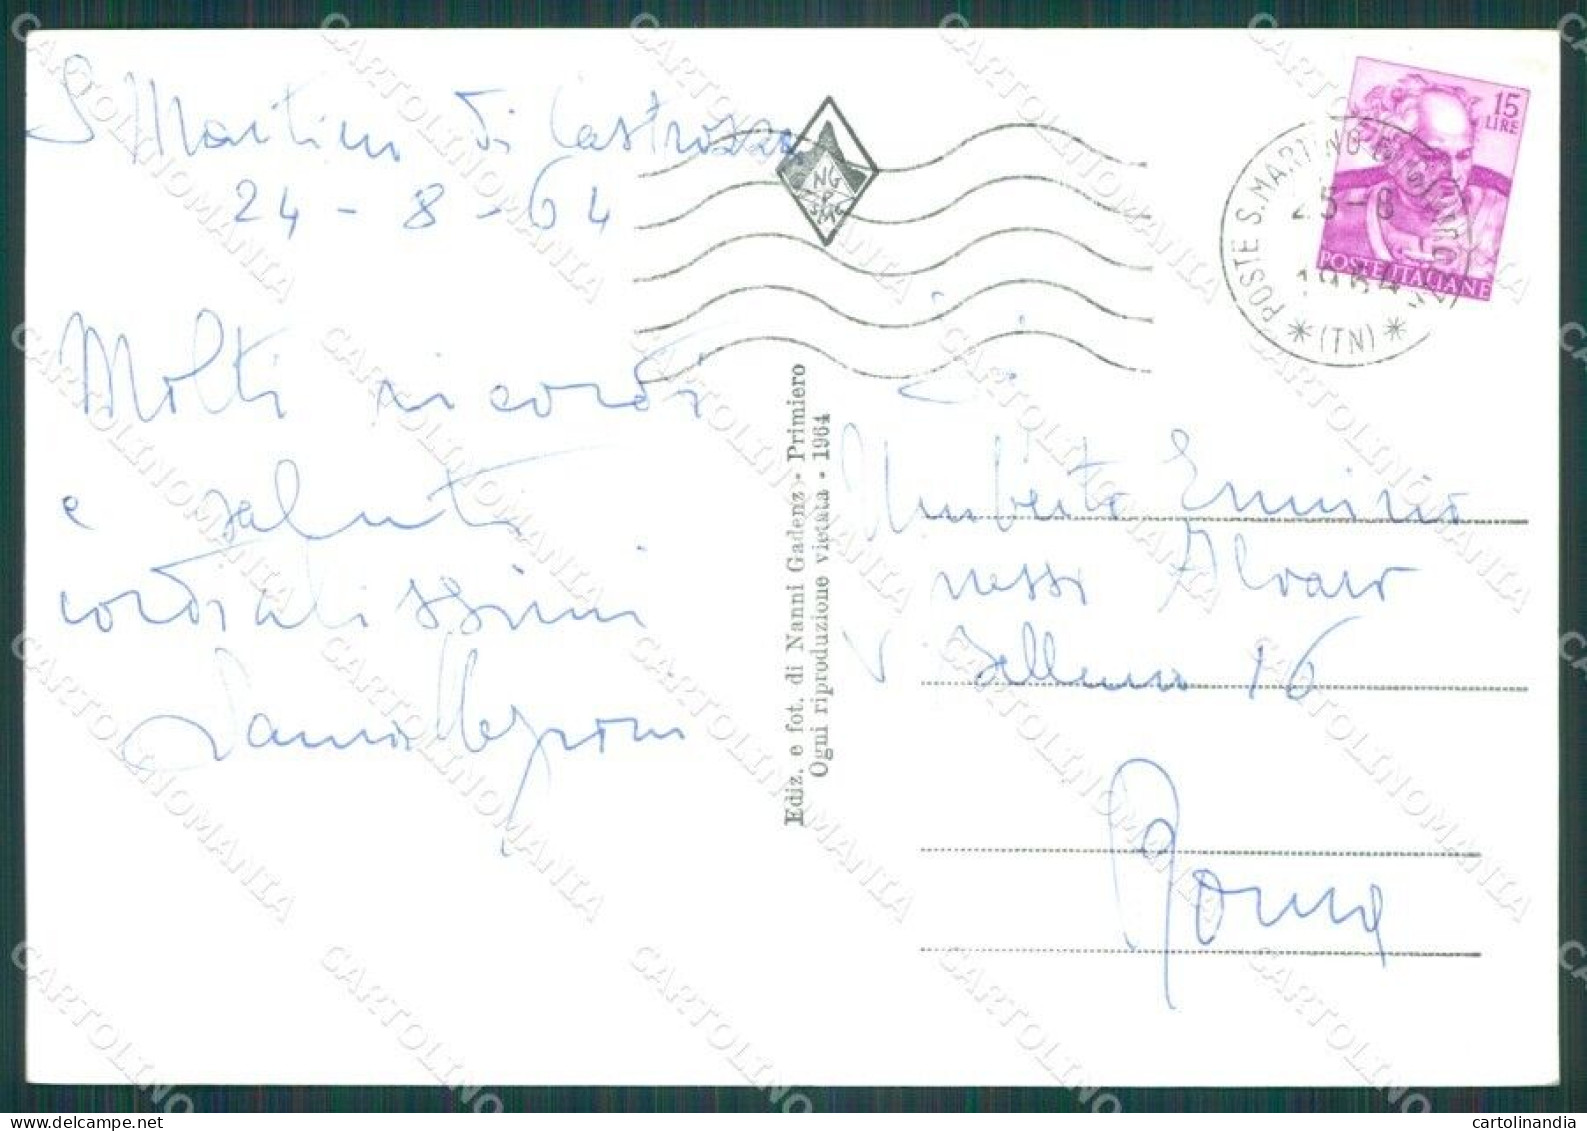 S Martino di Castrozza
24 - 8 - 64
Molti ricordi
e saluti
cordialissimi
NG
P
SMC
Ediz. e fot. di Nanni Gadenz - Primiero
Ogni riproduzione vietata - 1964
15
LIRE
POSTE ITALIANE
POSTE S. MARTINO DI CASTROZZA
25-8
1964
* (TN) *
Umberto
16
Roma
CARTOLINOMANIA
cartolinandia